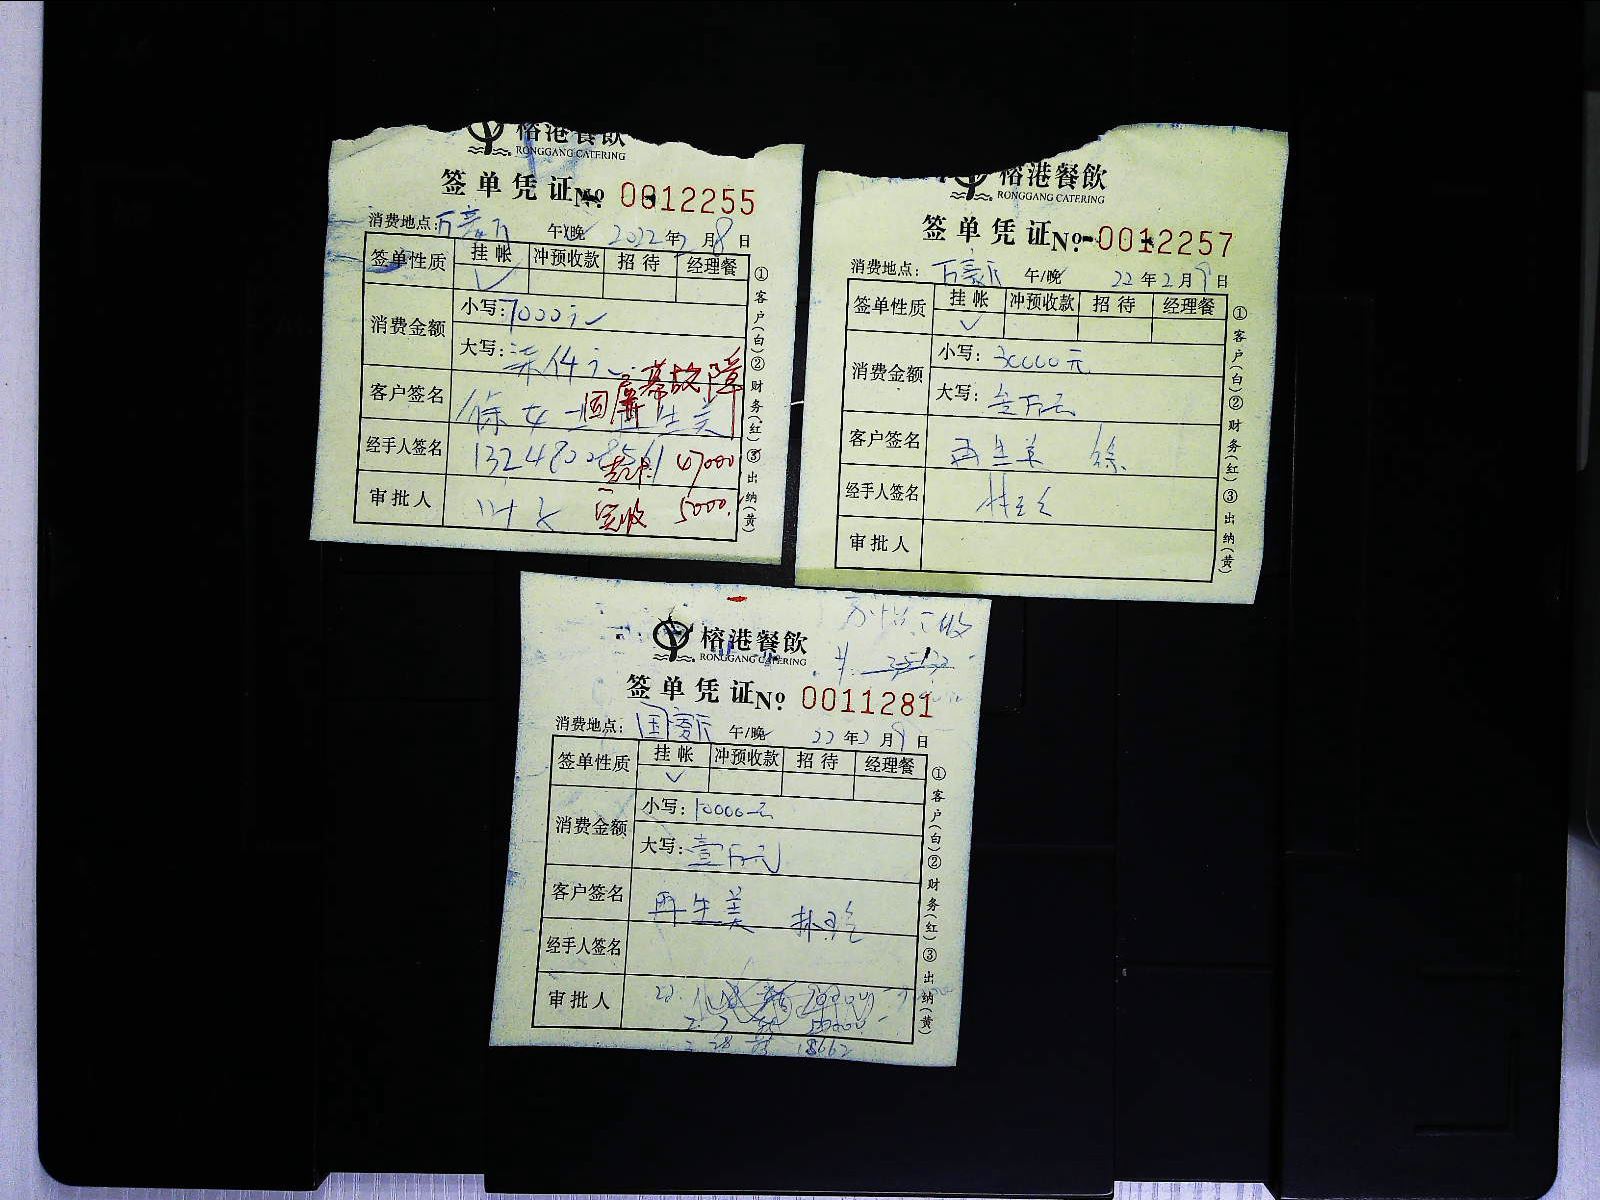 榕港餐飲
RONGGANG CATERING
签单凭证№ 0012255
消费地点: 午/晚 2022年2月8日
签单性质 挂帐 冲预收款 招待 经理餐
消费金额 小写: 7000元
大写: 柒仟元
客户签名 徐女士 再生美
因屏幕故障
经手人签名 13248008561 47000
审批人 实收 5000.
①客户(白)②财务(红)③出纳(黄)
榕港餐飲
RONGGANG CATERING
签单凭证№ 0012257
消费地点: 午/晚 22年2月9日
签单性质 挂帐 冲预收款 招待 经理餐
消费金额 小写: 30000元
大写: 叁万元
客户签名 再生美 徐
经手人签名
审批人
①客户(白)②财务(红)③出纳(黄)
榕港餐飲
RONGGANG CATERING
签单凭证№ 0011281
消费地点: 午/晚 22年2月9日
签单性质 挂帐 冲预收款 招待 经理餐
消费金额 小写: 10000元
大写: 壹万元
客户签名 再生美
经手人签名
审批人
28 18662
①客户(白)②财务(红)③出纳(黄)